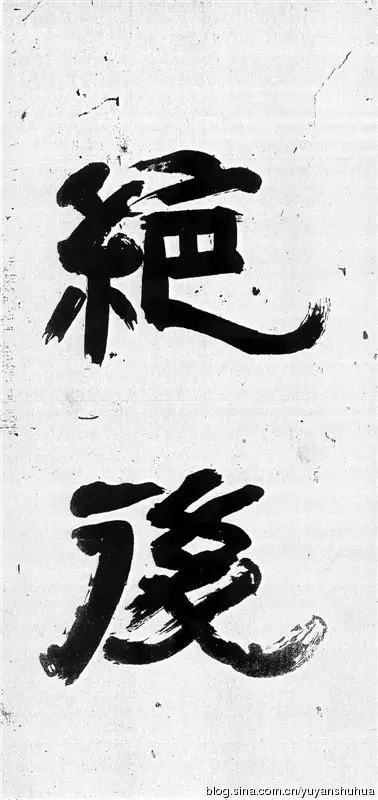 絕
後
blog.sina.com.cn/yuyanshuhua